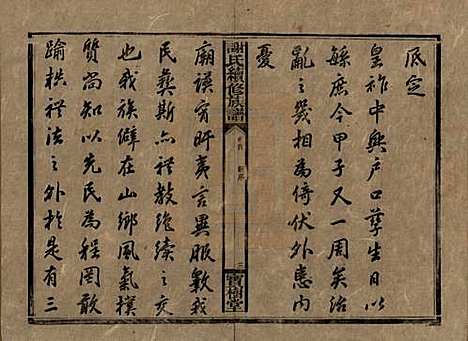 底定
皇祚中興户口孳生日以
緐庶今甲子又一周矣治
亂之幾相為倚伏外患内
憂
謝氏續修族譜
卷首
新序
三
寶樹堂
廟謨宵旰夷言異服斁我
民彝斯亦禮教絶續之交
也我族僻在山鄉風氣樸
質尚知以先民為程罔敢
踰秩禮法之外於是有三